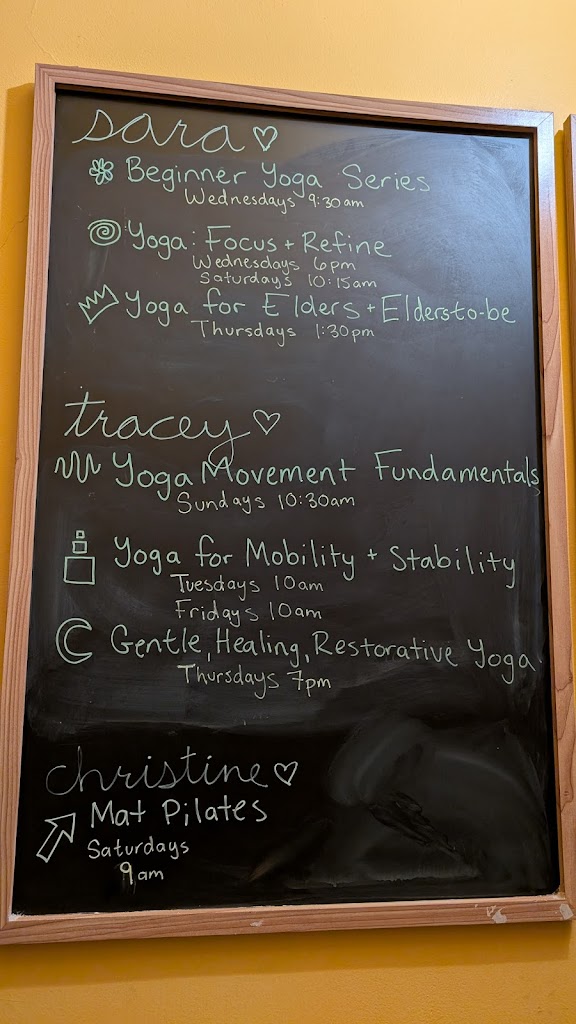 sara
Beginner Yoga Series
Wednesdays 9:30am
Yoga: Focus + Refine
Wednesdays 6pm
Saturdays 10:15am
Yoga for Elders + Elders-to-be
Thursdays 1:30pm
tracey
Yoga Movement Fundamentals
Sundays 10:30am
Yoga for Mobility + Stability
Tuesdays 10am
Fridays 10am
Gentle, Healing, Restorative Yoga
Thursdays 7pm
christine
Mat Pilates
Saturdays
9am